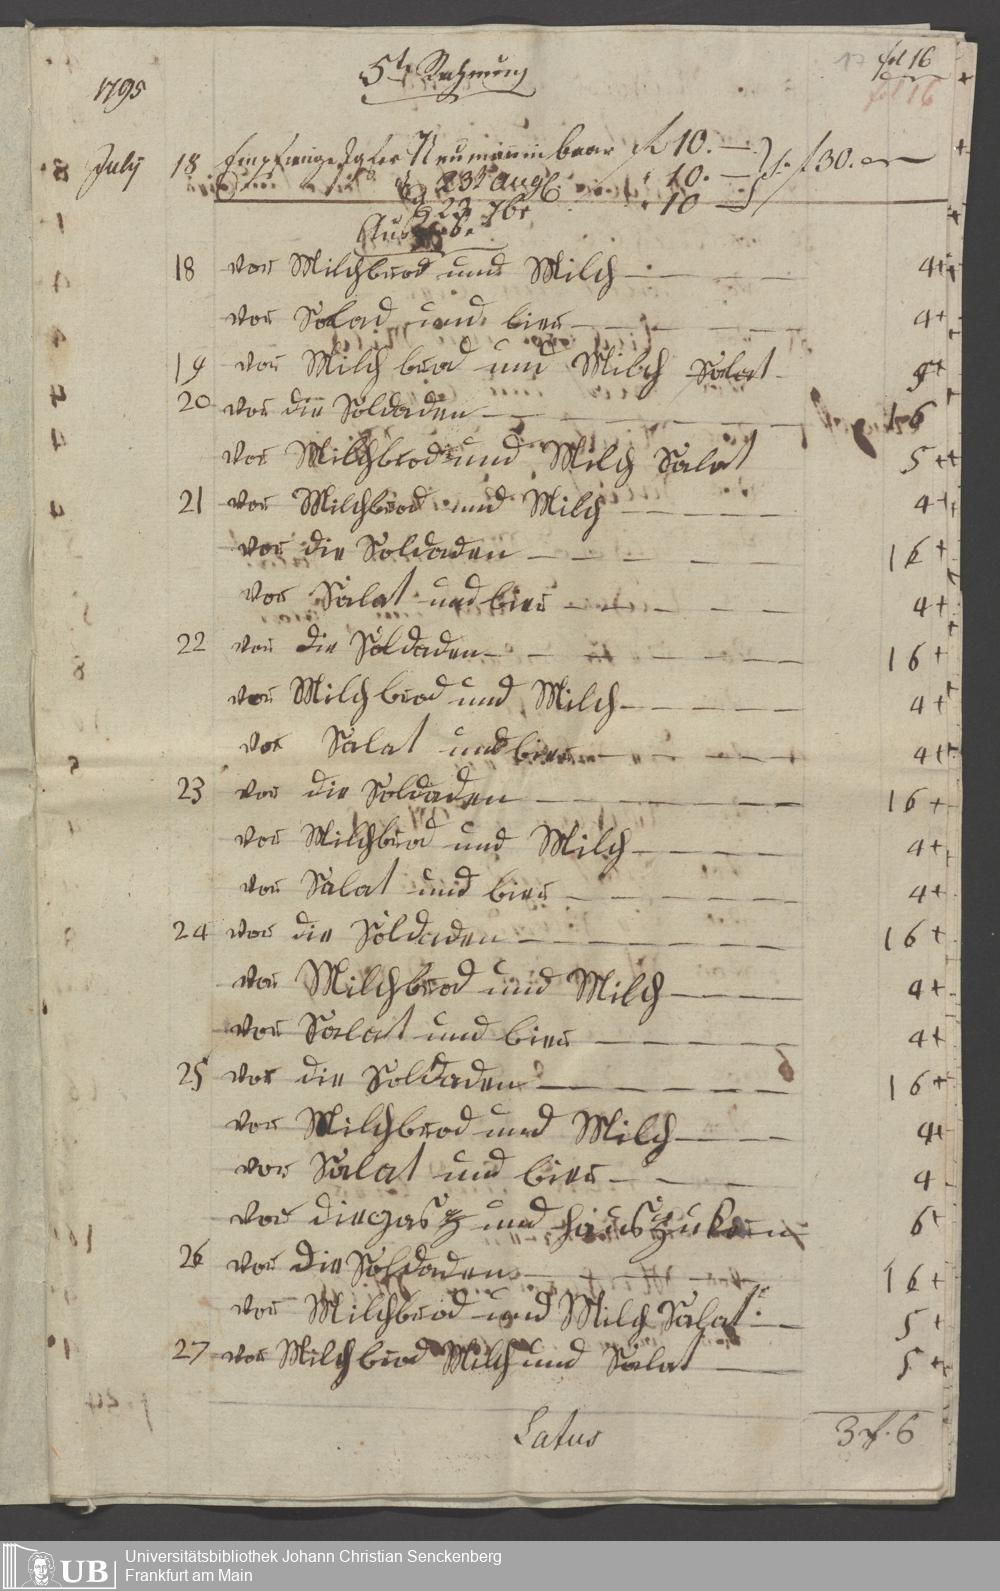 17 fol 16
fol 16
5te Rechnung
1795
July 18 Empfange Jgfer Neumännin baar f 10. — f. 30. —
d 23t Augl. " 10. —
d 23 7br " 10 —
Ausgabe
18 vor Milchbrod und Milch — 4 +
vor Solad und bier — 4 +
19 vor Milch brod und Milch Salat — 5 +
20 vor die Soldaden — 16
vor Milchbrod und Milch Salat 5 +
21 vor Milchbrod und Milch — 4 +
vor die Soldaden — 16 +
vor Salat und bier — 4 +
22 vor die Soldaden — 16 +
vor Milchbrod und Milch — 4 +
vor Salat und bier — 4 +
23 vor die Soldaden — 16 +
vor Milchbrod und Milch — 4 +
vor Salat und bier — 4 +
24 vor die Soldaden — 16 +
vor Milchbrod und Milch — 4 +
vor Salat und bier — 4 +
25 vor die Soldaden — 16 +
vor Milchbrod und Milch — 4 +
vor Salat und bier — 4
vor die und 6 +
26 vor die Soldaden — 16 +
vor Milchbrod und Milch Salat — 5 +
27 vor Milchbrod Milch und Salat — 5 +
Latus 3 f. 6
UB Universitätsbibliothek Johann Christian Senckenberg
Frankfurt am Main